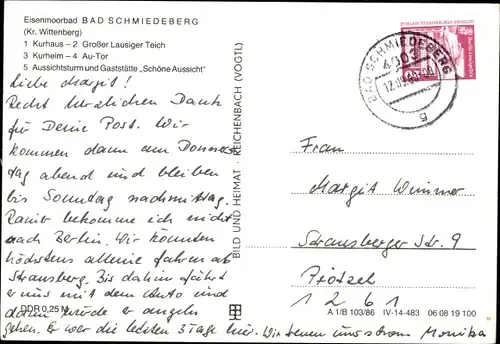 Eisenmoorbad BAD SCHMIEDEBERG
(Kr. Wittenberg)
1 Kurhaus – 2 Großer Lausiger Teich
3 Kurheim – 4 Au-Tor
5 Aussichtsturm und Gaststätte „Schöne Aussicht"
Liebe Margit!
Recht herzlichen Dank
für Deine Post. Wir
kommen dann am Donners
tag abend und bleiben
bis Sonntag nachmittag.
bekomme ich nicht
nach Berlin. Wir könnten
höchstens alleine fahren ab
Strausberg. Bis dahin fährt
er uns mit dem Auto und
dann würde er angeln
gehen. Er war die letzten 3 Tage hier. Wir freuen uns schon Monika
DDR 0,25 M
BILD UND HEIMAT · REICHENBACH (VOGTL)
BAD SCHMIEDEBERG
Frau
Margit Wimmer
Strausberger Str. 9
Prötzel
1261
A 1/B 103/86 IV-14-483 06 08 19 100